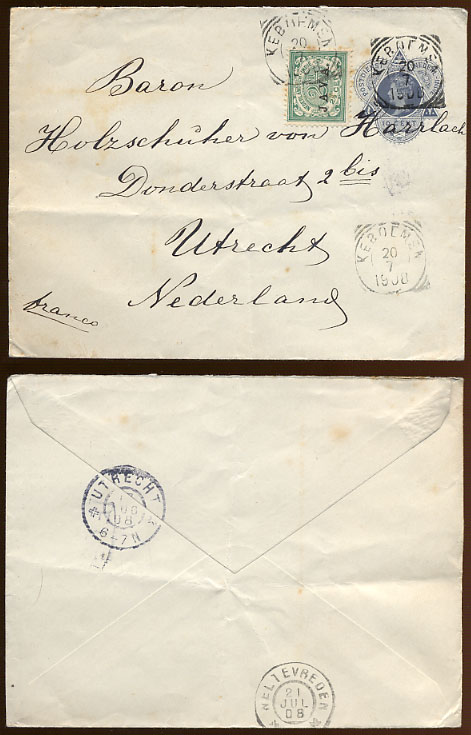 KEBOEMEN
20
JAVA.
KEBOEMEN
20
7
1908
Baron
Holzschüher von Harrlach
Donderstraat 2 bis
Utrecht
Nederland
franco
KEBOEMEN
20
7
1908
UTRECHT
08
6-7N
WELTEVREDEN
21
JUL
08